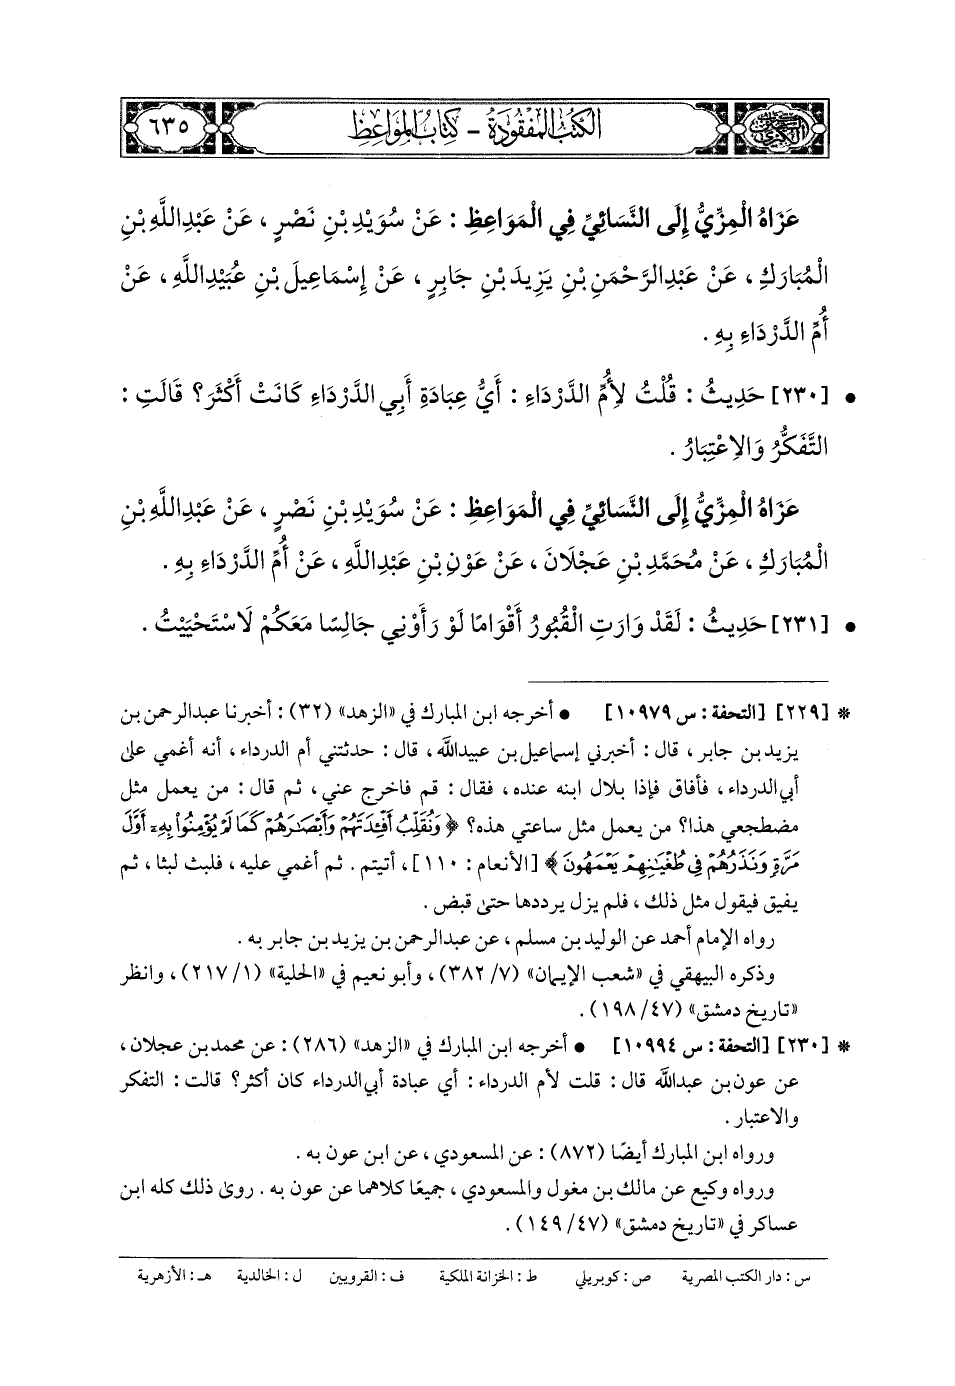 الكتب المفقودة - كتاب المواعظ
٦٣٥
عَزَاهُ الْمِزِّيُّ إِلَى النَّسَائِيِّ فِي الْمَوَاعِظِ : عَنْ سُوَيْدِ بْنِ نَصْرٍ ، عَنْ عَبْدِاللَّهِ بْنِ
الْمُبَارَكِ ، عَنْ عَبْدِالرَّحْمَنِ بْنِ يَزِيدَ بْنِ جَابِرٍ ، عَنْ إِسْمَاعِيلَ بْنِ عُبَيْدِاللَّهِ ، عَنْ
أُمِّ الدَّرْدَاءِ بِهِ .
• [٢٣٠] حَدِيثُ : قُلْتُ لِأُمِّ الدَّرْدَاءِ : أَيُّ عِبَادَةِ أَبِي الدَّرْدَاءِ كَانَتْ أَكْثَرَ؟ قَالَتِ :
التَّفَكُّرُ وَالِاعْتِبَارُ .
عَزَاهُ الْمِزِّيُّ إِلَى النَّسَائِيِّ فِي الْمَوَاعِظِ : عَنْ سُوَيْدِ بْنِ نَصْرٍ ، عَنْ عَبْدِاللَّهِ بْنِ
الْمُبَارَكِ ، عَنْ مُحَمَّدِ بْنِ عَجْلَانَ ، عَنْ عَوْنِ بْنِ عَبْدِاللَّهِ ، عَنْ أُمِّ الدَّرْدَاءِ بِهِ .
• [٢٣١] حَدِيثُ : لَقَدْ وَارَتِ الْقُبُورُ أَقْوَامًا لَوْ رَأَوْنِي جَالِسًا مَعَكُمْ لَاسْتَحْيَيْتُ .
* [٢٢٩] [التحفة : س ١٠٩٧٩] • أخرجه ابن المبارك في «الزهد» (٣٢) : أخبرنا عبدالرحمن بن
يزيد بن جابر ، قال : أخبرني إسماعيل بن عبيدالله ، قال : حدثتني أم الدرداء ، أنه أغمي على
أبي الدرداء ، فأفاق فإذا بلال ابنه عنده ، فقال : قم فاخرج عني ، ثم قال : من يعمل مثل
مضطجعي هذا؟ من يعمل مثل ساعتي هذه؟ ﴿ وَنُقَلِّبُ أَفْـِٔدَتَهُمْ وَأَبْصَـٰرَهُمْ كَمَا لَمْ يُؤْمِنُوا۟ بِهِۦٓ أَوَّلَ
مَرَّةٍ وَنَذَرُهُمْ فِى طُغْيَـٰنِهِمْ يَعْمَهُونَ ﴾ [الأنعام : ١١٠] ، أتيتم . ثم أغمي عليه ، فلبث لبثا ، ثم
يفيق فيقول مثل ذلك ، فلم يزل يرددها حتى قبض .
رواه الإمام أحمد عن الوليد بن مسلم ، عن عبدالرحمن بن يزيد بن جابر به .
وذكره البيهقي في «شعب الإيمان» (٧/ ٣٨٢) ، وأبو نعيم في «الحلية» (١/ ٢١٧) ، وانظر
«تاريخ دمشق» (٤٧/ ١٩٨) .
* [٢٣٠] [التحفة : س ١٠٩٩٤] • أخرجه ابن المبارك في «الزهد» (٢٨٦) : عن محمد بن عجلان ،
عن عون بن عبدالله قال : قلت لأم الدرداء : أي عبادة أبي الدرداء كان أكثر؟ قالت : التفكر
والاعتبار .
ورواه ابن المبارك أيضًا (٨٧٢) : عن المسعودي ، عن ابن عون به .
ورواه وكيع عن مالك بن مغول والمسعودي ، جميعًا كلاهما عن عون به . روى ذلك كله ابن
عساكر في «تاريخ دمشق» (٤٧/ ١٤٩) .
س : دار الكتب المصرية ص : كوبريلي ط : الخزانة الملكية ف : القرويين ل : الخالدية هـ : الأزهرية